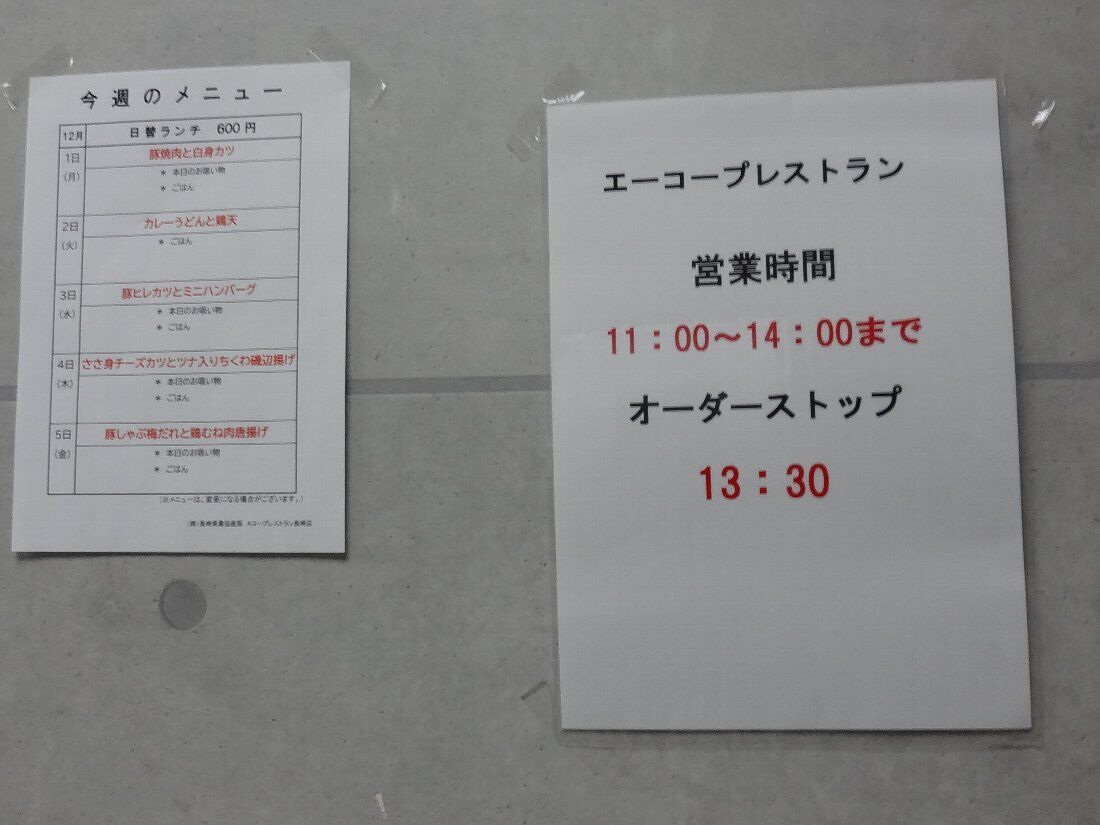 今週のメニュー
12月 日替ランチ 600円
1日 豚焼肉と白身カツ
(月) * 本日のお吸い物
* ごはん
2日 カレーうどんと鶏天
(火) * ごはん
3日 豚ヒレカツとミニハンバーグ
(水) * 本日のお吸い物
* ごはん
4日 ささ身チーズカツとツナ入りちくわ磯辺揚げ
(木) * 本日のお吸い物
* ごはん
5日 豚しゃぶ梅だれと鶏むね肉唐揚げ
(金) * 本日のお吸い物
* ごはん
(※メニューは、変更になる場合がございます。)
(株)長崎県農協直販 Aコープレストラン長崎店
エーコープレストラン
営業時間
11:00～14:00まで
オーダーストップ
13:30